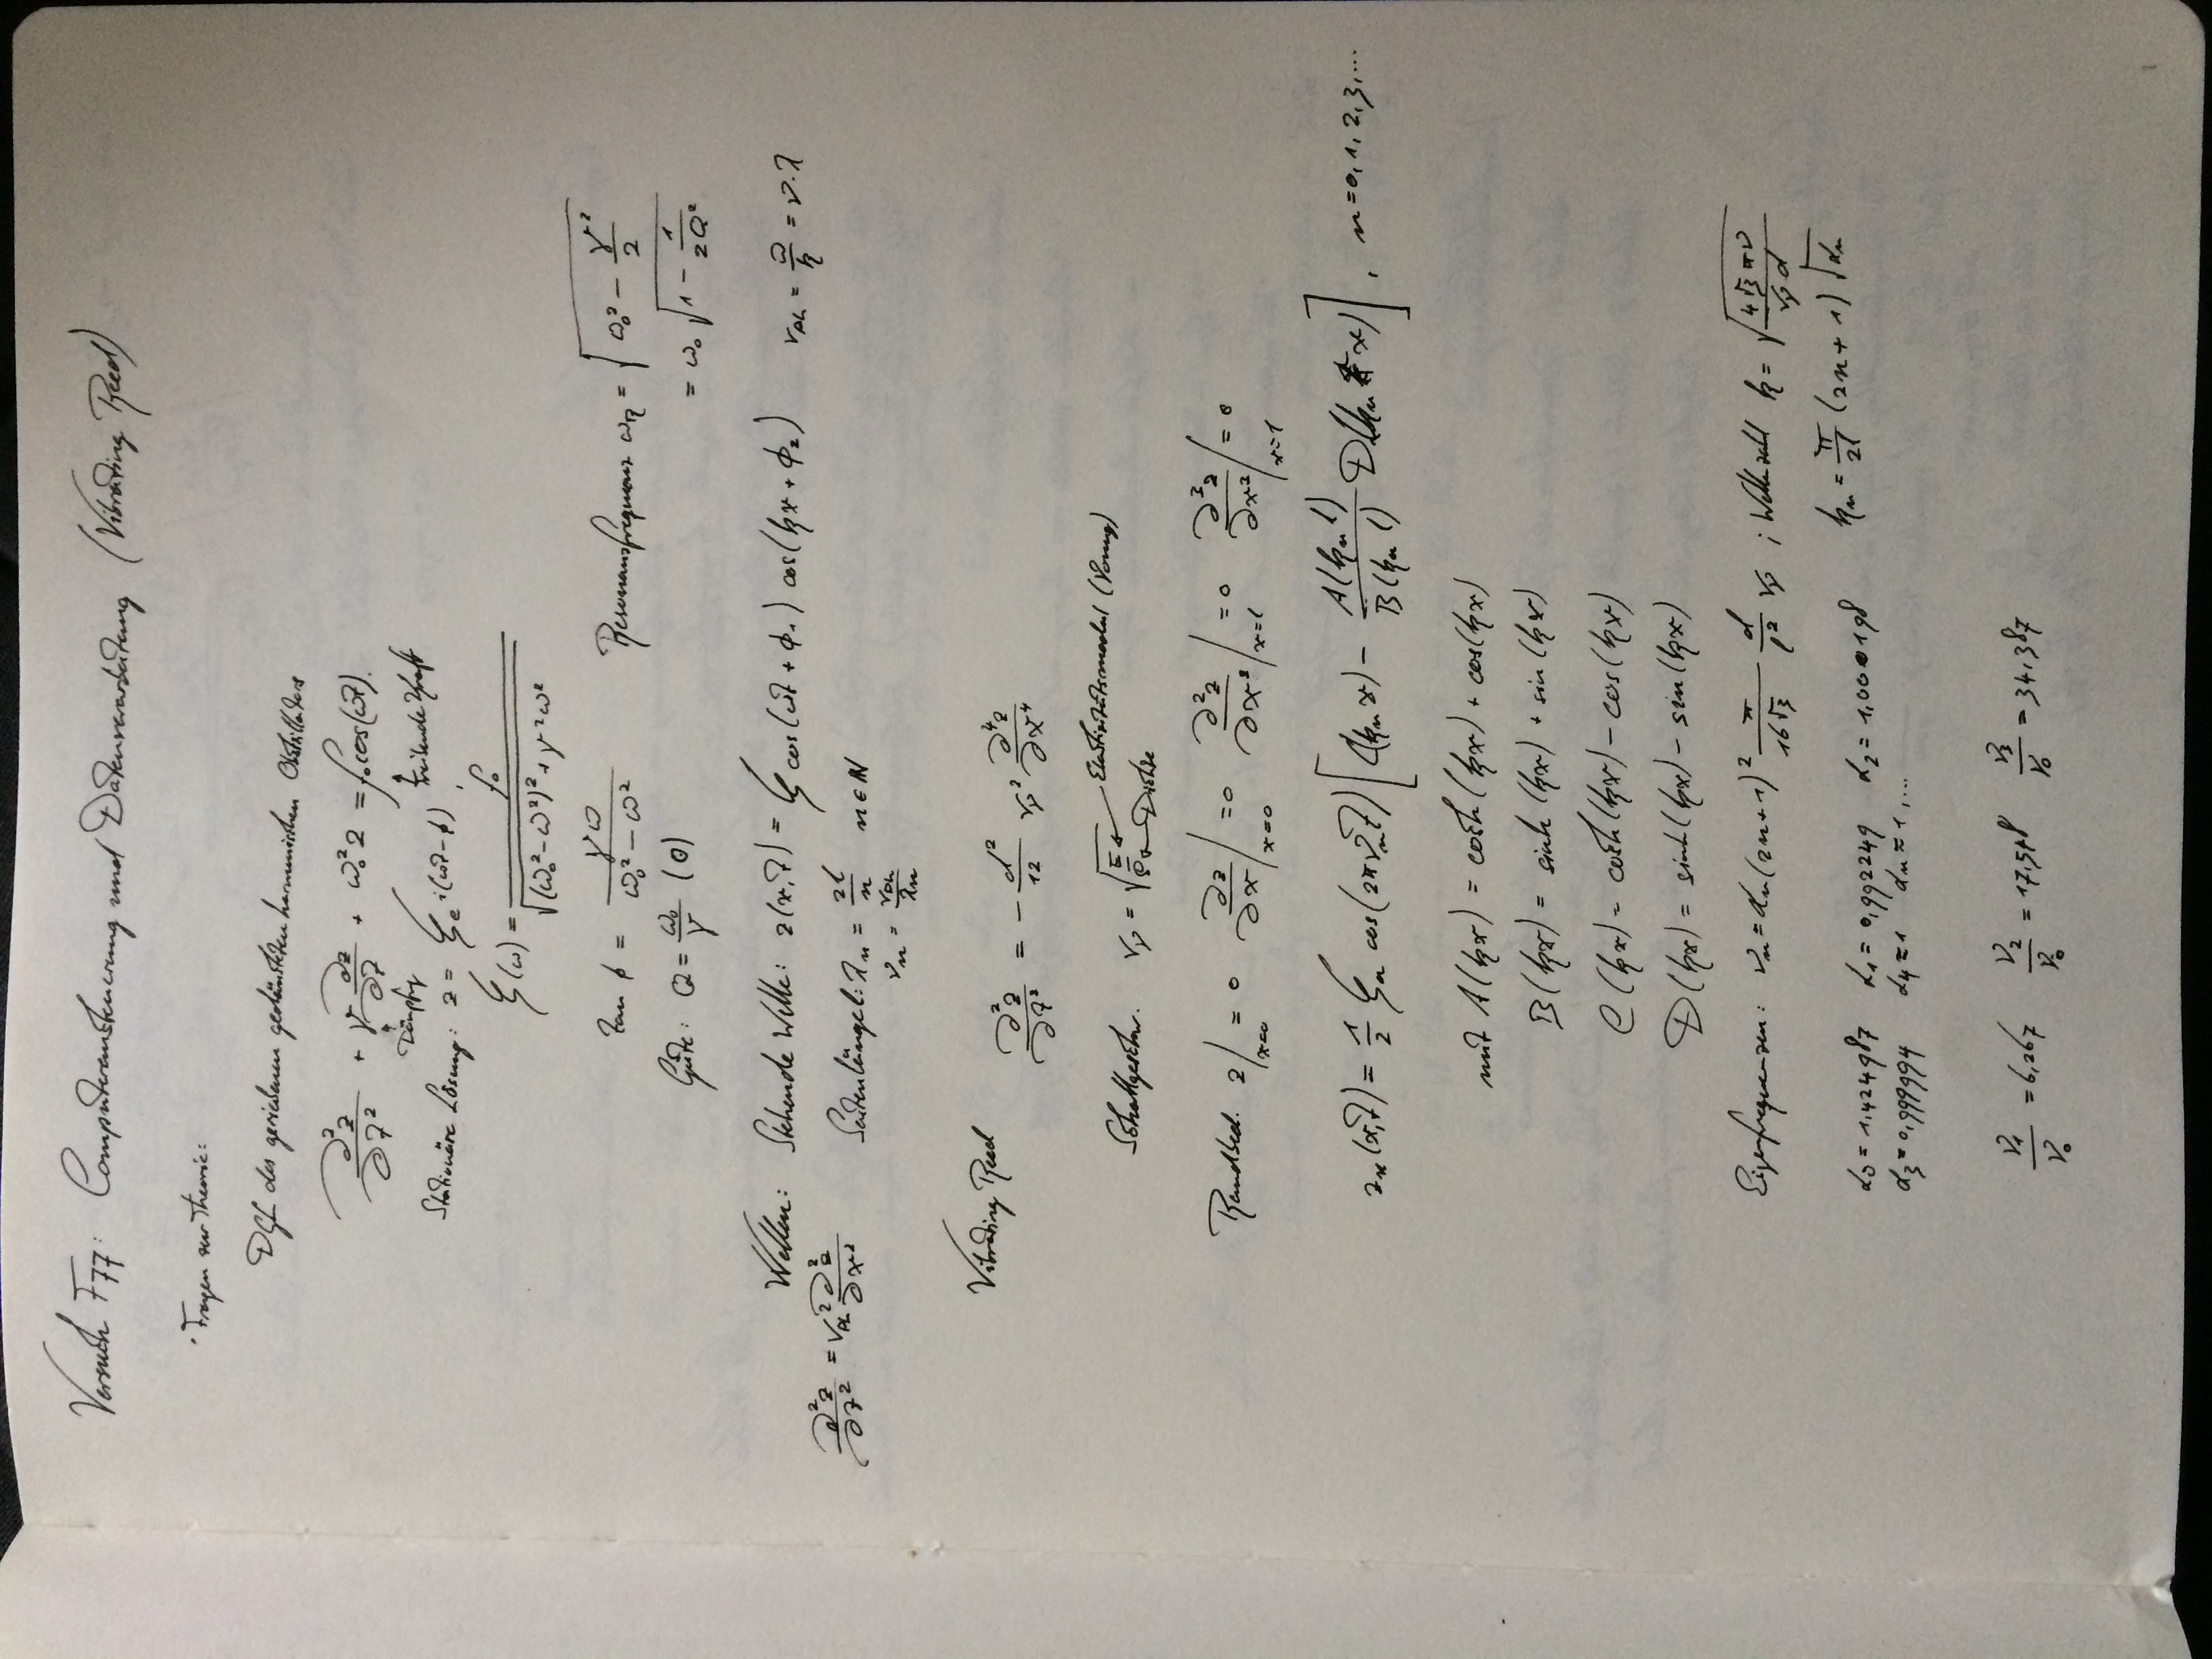 Versuch F77: Computeransteuerung und Datenverarbeitung (Vibrating Reed)
· Fragen zur Theorie:
DGL des getriebenen gedämpften harmonischen Oszillators
∂²z/∂t² + γ ∂z/∂t + ω₀² z = f₀ cos(ωt).
Dämpfg treibende Kraft
Stationäre Lösung: z = ξ e^i(ωt-ϕ),
ξ(ω) = f₀ / √((ω₀² - ω²)² + γ²ω²)
tan ϕ = γω / (ω₀² - ω²) Resonanzfrequenz ω_R = √(ω₀² - γ²/2)
Güte: Q = ω₀/γ (0) = ω₀ √(1 - 1/2Q²)
Wellen: Stehende Welle: z(x,t) = ξ cos(ωt + ϕ₁) cos(kx + ϕ₂) v_Ph = ω/k = ν·λ
∂²z/∂t² = v_Ph² ∂²z/∂x² Saitenlänge l: λ_n = 2l/n n ∈ ℕ
ν_n = v_Ph/λ_n
Vibrating Reed ∂²z/∂t² = - d²/12 v_s² ∂⁴z/∂x⁴
Schallgeschw. v_s = √(E/ρ) ← Elastizitätsmodul (Young)
← Dichte
Randbed. z|x=0 = 0 ∂z/∂x|x=0 = 0 ∂²z/∂x²|x=l = 0 ∂³z/∂x³|x=l = 0
z_n(x,t) = 1/2 ξ_n cos(2πν_n t) [C(k_n x) - A(k_n l)/B(k_n l) D(k_n x)], n = 0,1,2,3,...
mit A(kx) = cosh(kx) + cos(kx)
B(kx) = sinh(kx) + sin(kx)
C(kx) = cosh(kx) - cos(kx)
D(kx) = sinh(kx) - sin(kx)
Eigenfrequenzen: ν_n = α_n (2n+1)² π/16√3 d/l² v_s ; Wellenzahl k = √(4√3 πν / v_s d)
α₀ = 1,424987 α₁ = 0,992249 α₂ = 1,000198 k_n = π/2l (2n+1) √α_n
α₃ = 0,999994 α₄ ≈ 1 α_n ≈ 1,...
ν₁/ν₀ = 6,267 ν₂/ν₀ = 17,548 ν₃/ν₀ = 34,387